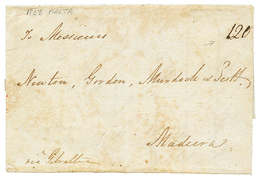 PSE MALTA
120
To Messieurs
Newton, Gordon, Murdoch & Scott
Madeira
via Gibraltar